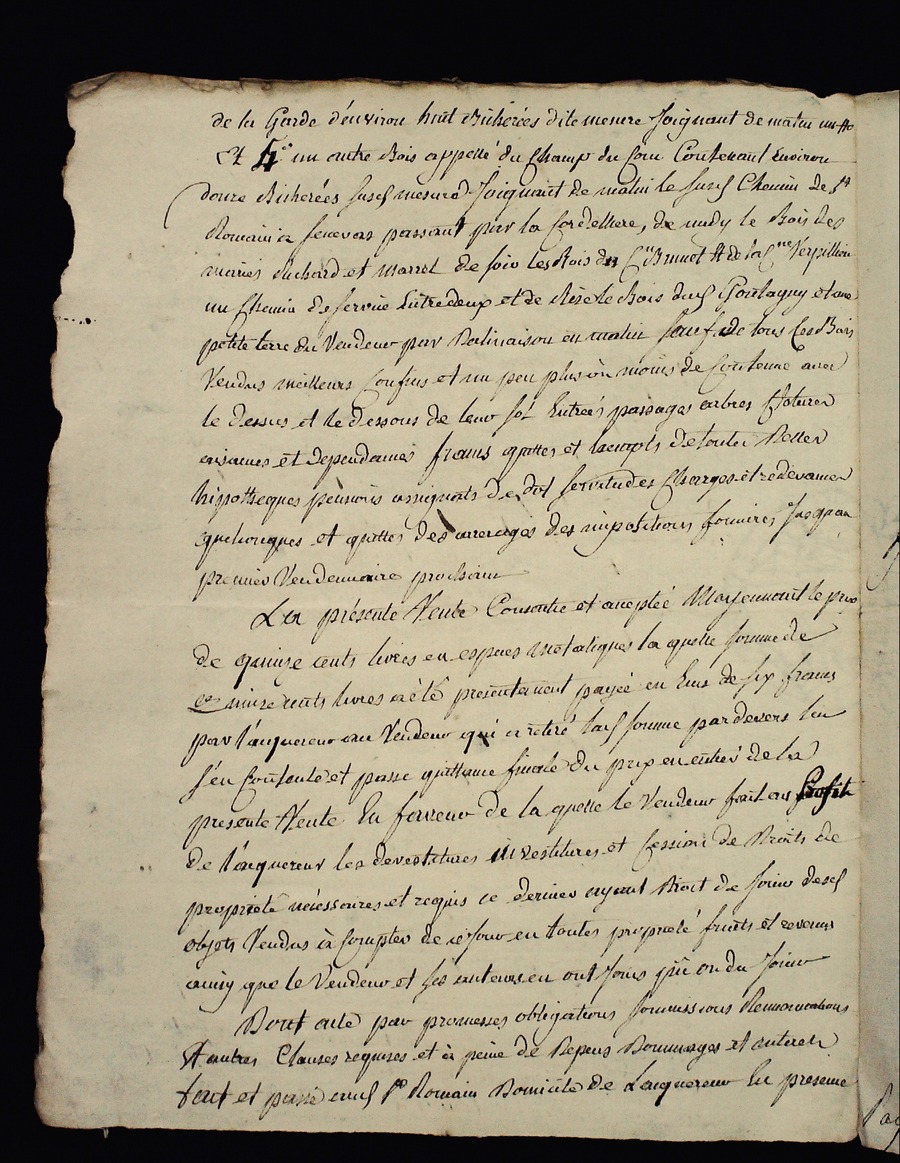 de la Garde d'environ huit Bicherées dite mesure Joignant de matin
Et 4° un autre Bois appellé du Champ du Contenant Environ
douze Bicherées susd mesure Joignant de matin le susd Chemin de St
Romain a passant par la Cordelliere, de midy le Bois des
mariés Richard et de soir les Bois du Cen Brunot et de la Cne Verpillieu
un Chemin de service Entredeux et de Bize le Bois dud Gontagny et une
petite terre du Vendeur par en matin sauf de tous ces Bois
Vendus meilleurs Confins et un peu plus ou moins de Contenue avec
le dessus et le dessous de leur sol Entrées passages arbres Cloture
aisances et dependances francs quittes et Exempts de toutes Dettes
hipotheques pensions assignats de dot servitudes Charges et redevances
quelconques et quittes des arrerages des impositions foncieres Jusquau
premier Vendemiaire prochain
La présente Vente Consentie et acceptée Moyennant le prix
de quinze cents livres en especes métaliques la quelle somme de
quinze cents livres a été presentement payée en Ecus de six francs
par l'aquereur au Vendeur qui a retiré lad somme par devers lui
s'en Contente et passe quittance finale du prix en entier de la
presente Vente En faveur de la quelle le Vendeur fait au Profit
De l'aquereur les devestitures investitures et Cession de Droits de
propriété nécessaires et requis ce dernier ayant Droit de Jouir desd
objets Vendus à Compter de ce Jour en toutes propriété fruits et revenus
ainsy que le Vendeur et ses auteurs en ont Jouis pû ou du Jouir
Dont acte par promesses obligations soumissions Renonciations
Et autres Clauses requises et à peine de Depens Dommages et interets
fait et passé aud St Romain Domicile de Laquereur En presence